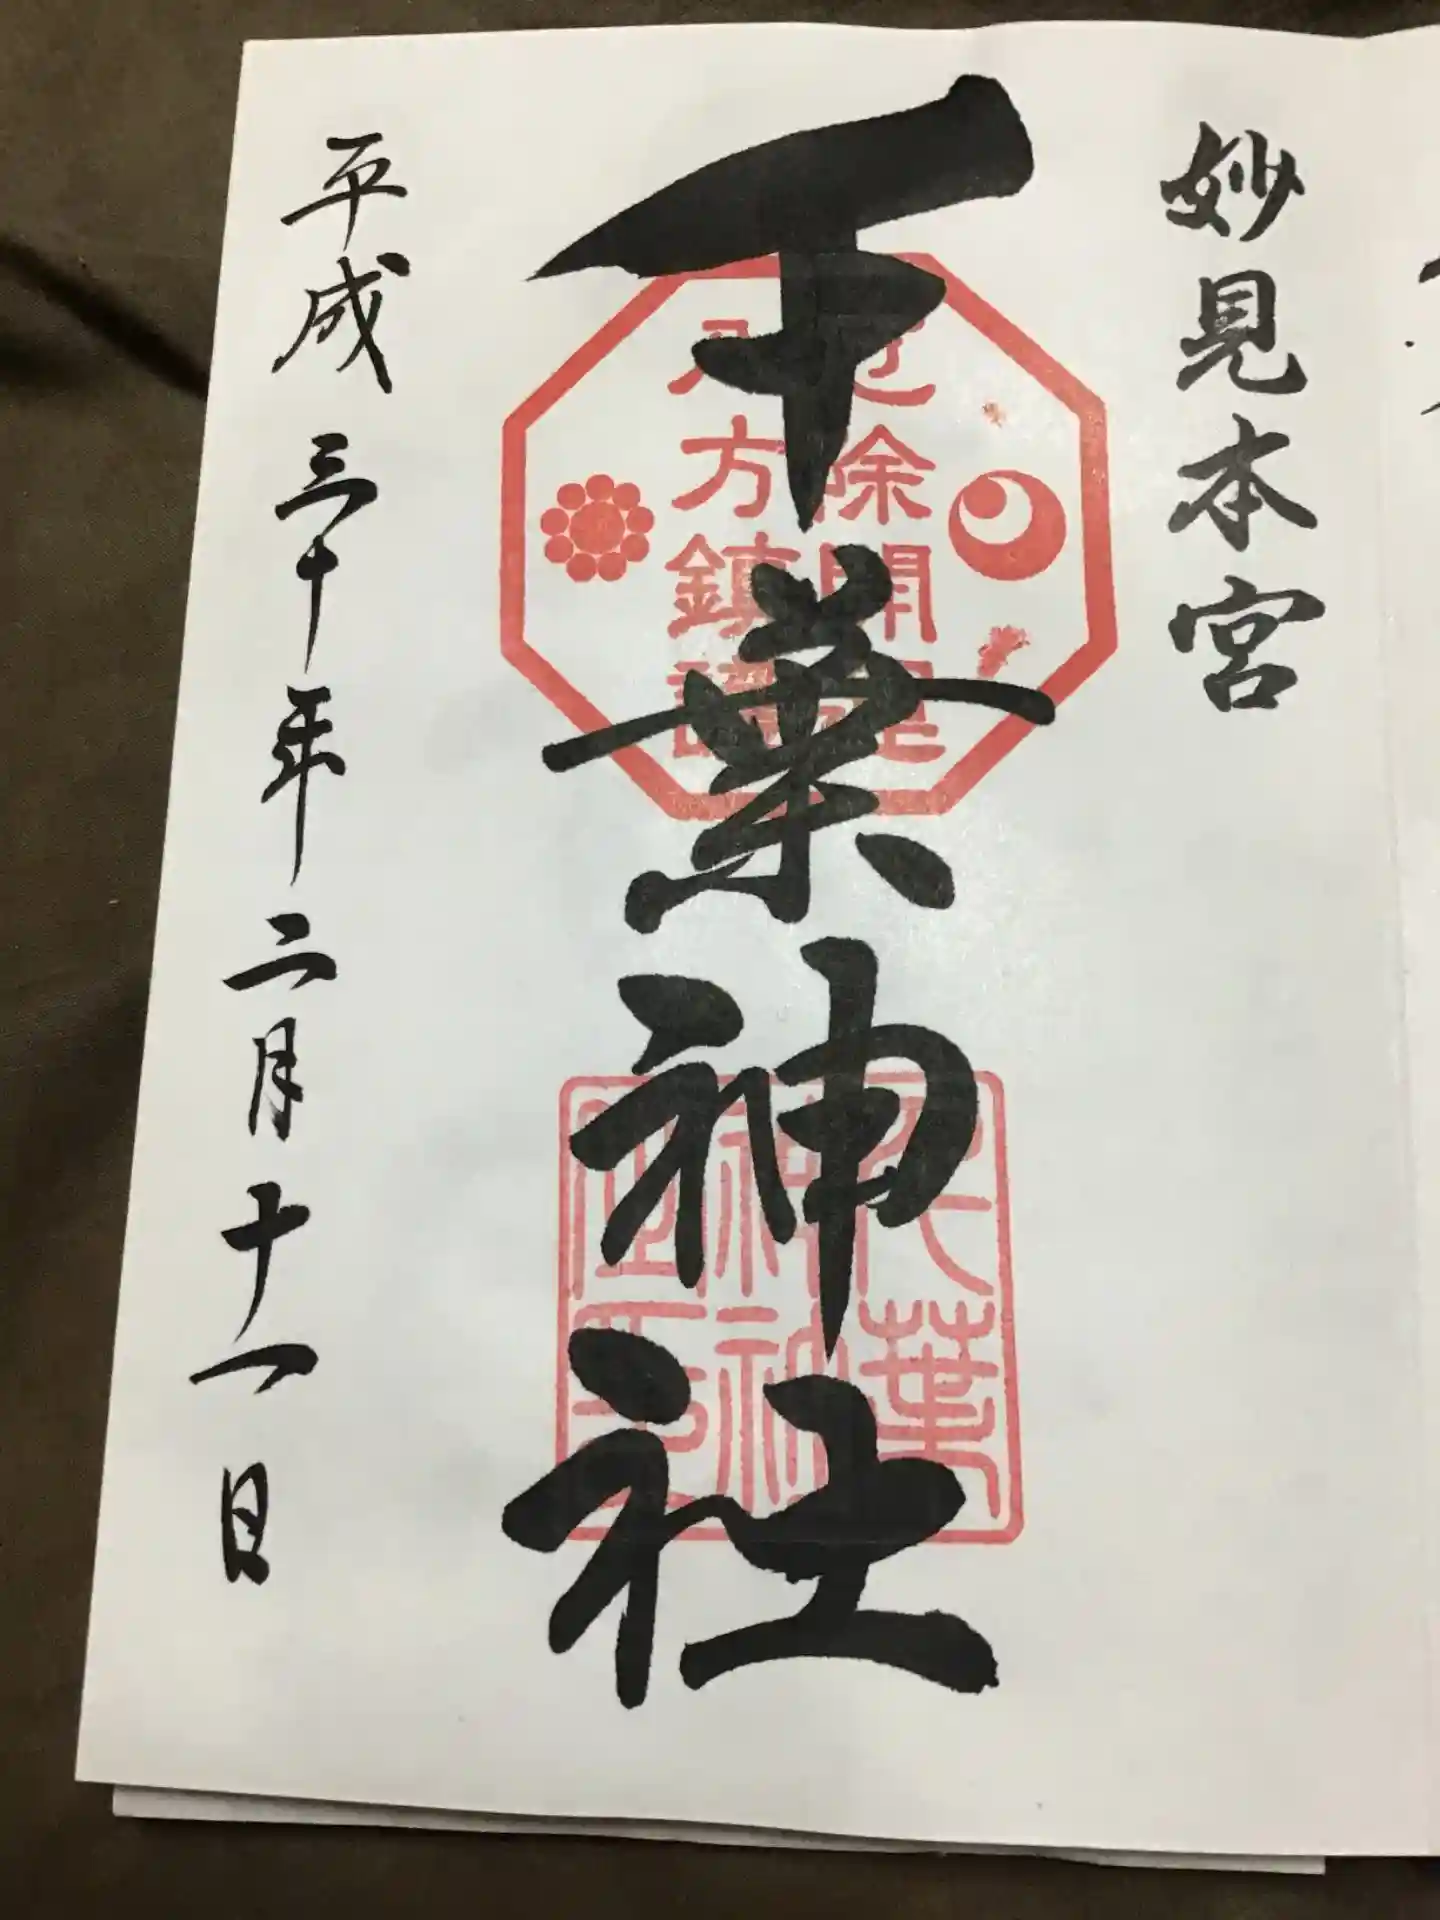 妙見本宮
千葉神社
厄除開運
八方鎮護
千葉
神社
平成三十年二月十一日